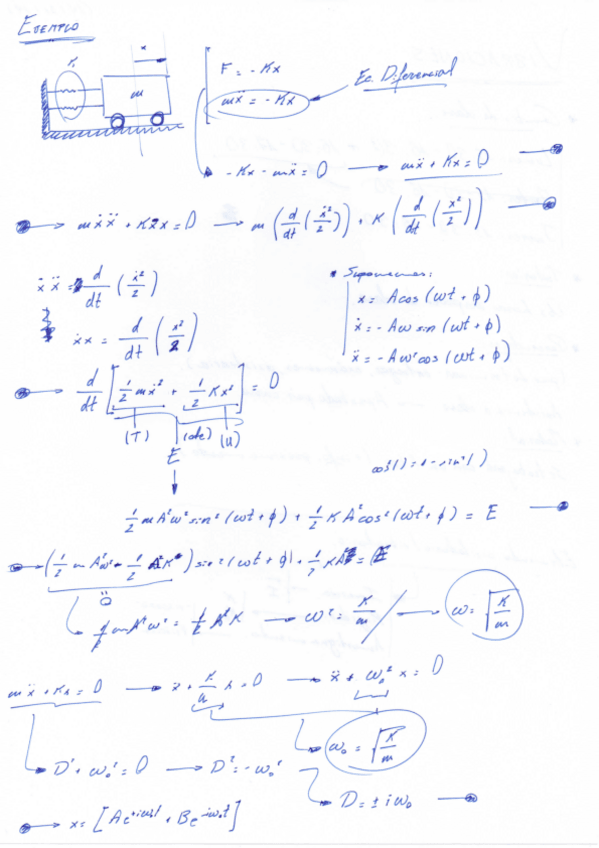 EJEMPLO
x
K
m
F = -Kx
mẍ = -Kx
Ec. Diferencial
-Kx - mẍ = 0 → mẍ + Kx = 0
mẋẍ + Kẋx = 0 → m (d/dt (ẋ²/2)) + K (d/dt (x²/2))
ẋẍ = d/dt (ẋ²/2)
ẋx = d/dt (x²/2)
• Suponemos:
x = A cos (ωt + φ)
ẋ = -Aω sin (ωt + φ)
ẍ = -Aω² cos (ωt + φ)
d/dt [1/2 mẋ² + 1/2 Kx²] = 0
(T) (cte) (U)
E
cos²() = 1 - sin²()
1/2 m A²ω² sin² (ωt + φ) + 1/2 K A² cos² (ωt + φ) = E
(1/2 m A²ω² - 1/2 A²K) sin² (ωt + φ) + 1/2 KA² = E
0
1/2 m A²ω² = 1/2 A²K → ω² = K/m → ω = √(K/m)
mẍ + Kx = 0 → ẍ + K/m x = 0 → ẍ + ω₀² x = 0
ω₀ = √(K/m)
D² + ω₀² = 0 → D² = -ω₀²
D = ± iω₀
x = [A e^(+iω₀t) + B e^(-iω₀t)]